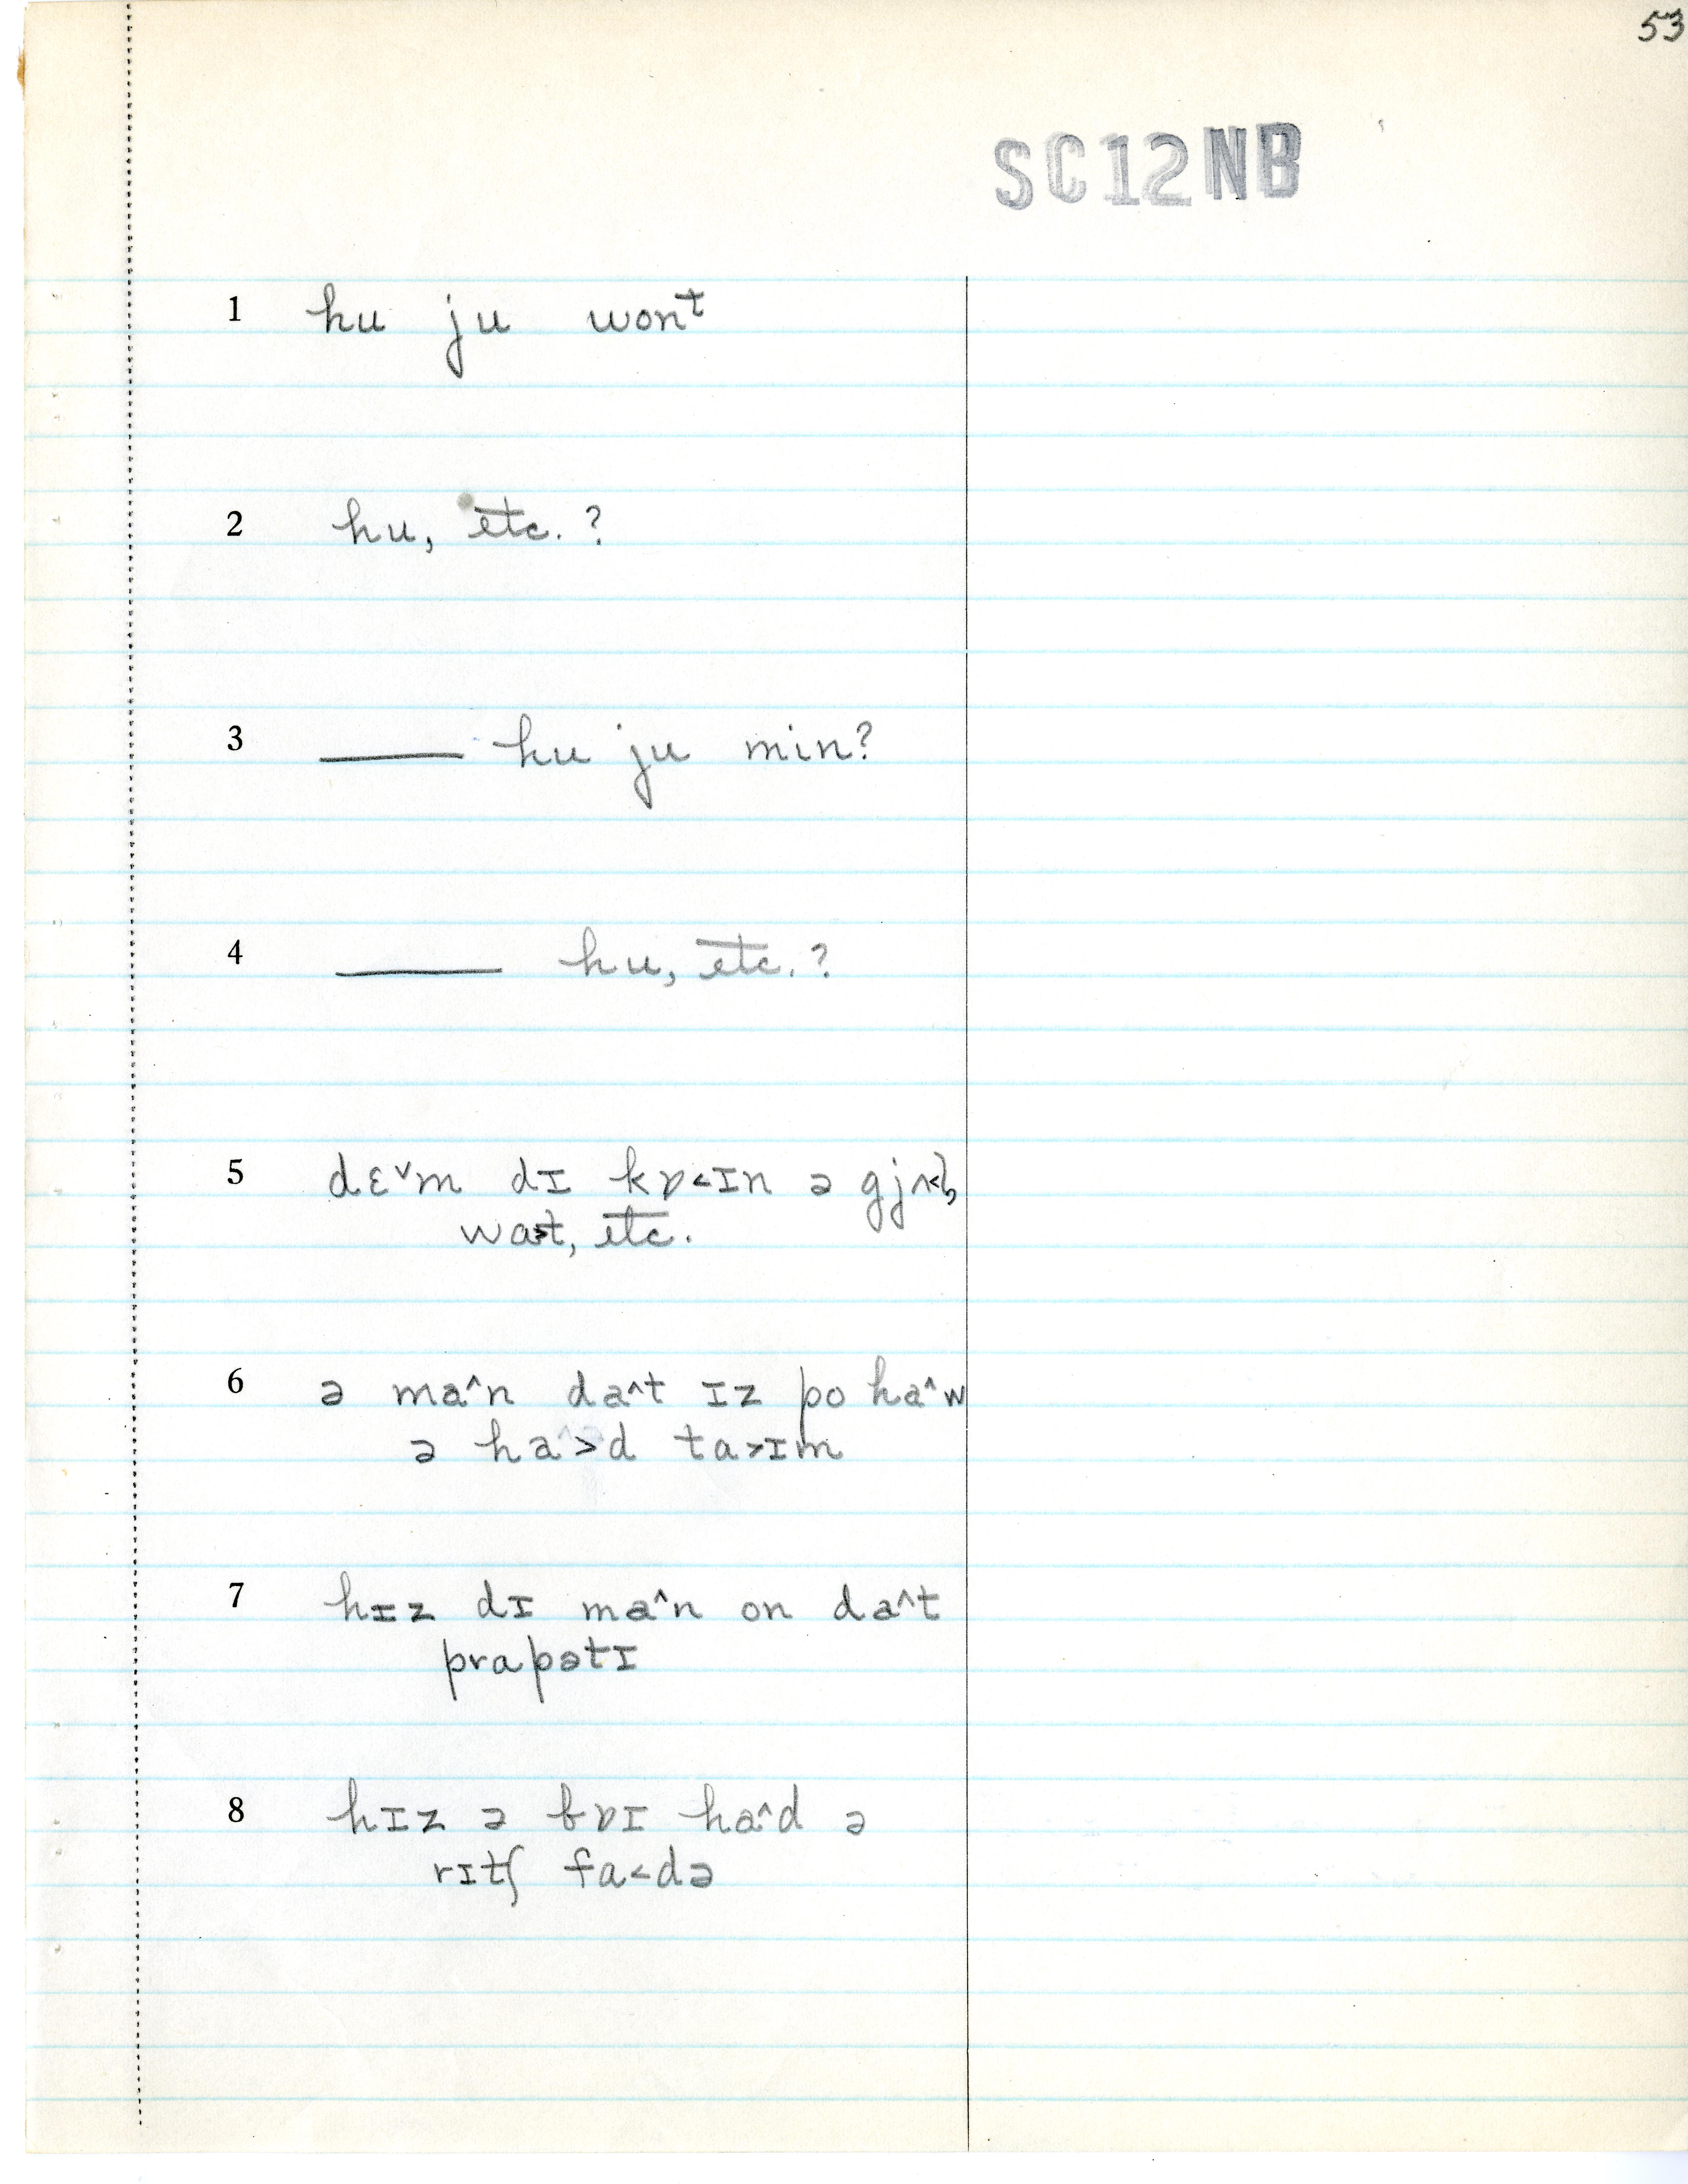 53
SC12NB
1 hu ju wonᵗ
2 hu, etc. ?
3 ——— hu ju min?
4 ——— hu, etc. ?
5 dɛ˅m dɪ kɒ˂ɪn ə
wa˃t, etc.
6 ə ma^n da^t ɪz po ha^w
ə ha˃d ta˃ɪm
7 hɪz dɪ ma^n on da^t
prapətɪ
8 hɪz ə bɒɪ ha^d ə
rɪtʃ fa˂də